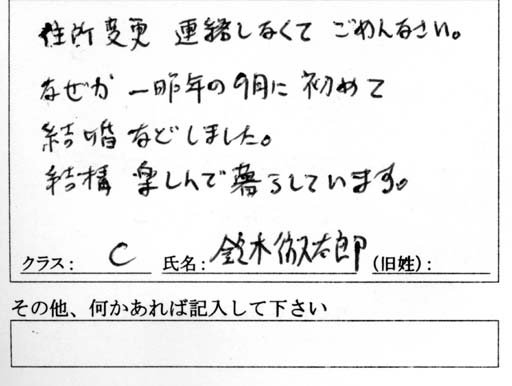 住所変更 連絡しなくて ごめんなさい。
なぜか 一昨年の9月に 初めて
結婚などしました。
結構 楽しんで暮らしています。
クラス: C 氏名: 鈴木 太郎 (旧姓):
その他、何かあれば記入して下さい